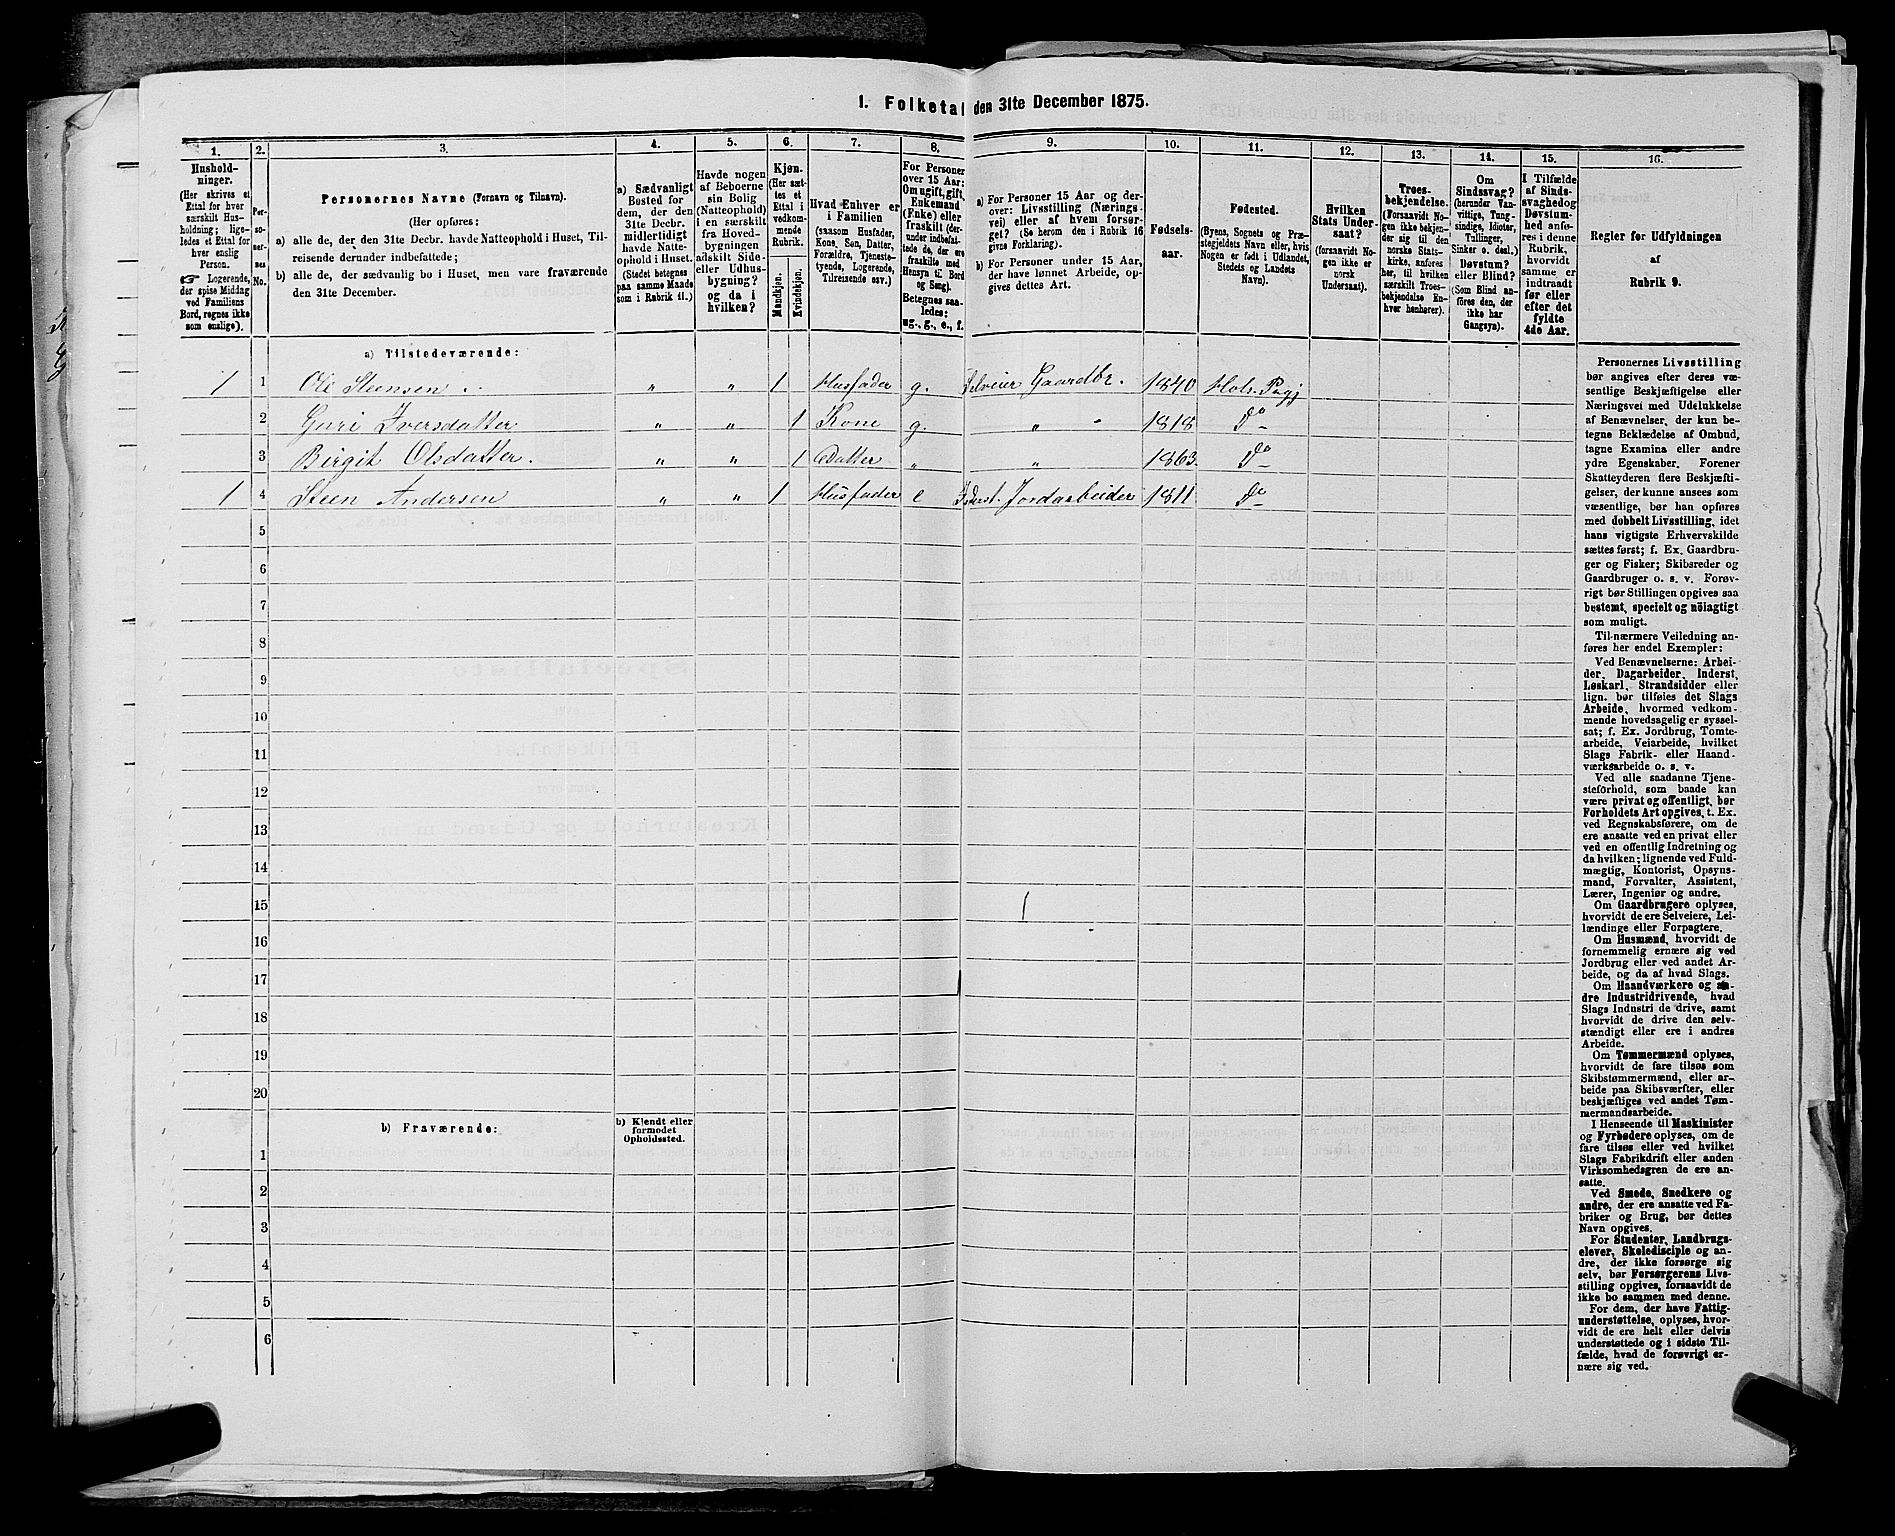 1. Folketal den 31te December 1875.
1.
2.
3.
4.
5.
6.
7.
8.
9.
10.
11.
12.
13.
14.
15.
16.
Hushold-
ninger.
(Her skrives et
Ettal for hver
særskilt Hus-
holdning; lige-
ledes et Ettal for
hver enslig
Person.
☞ Logerende,
der spise Middag
ved Familiens
Bord, regnes ikke
som enslige).
Per-
so-
ner-
nes
No.
Personernes Navne (Fornavn og Tilnavn).
(Her opføres:
a) alle de, der den 31te Decbr. havde Natteophold i Huset, Til-
reisende derunder indbefattede;
b) alle de, der sædvanlig bo i Huset, men vare fraværende
den 31te December.
a) Sædvanligt
Bosted for
dem, der den
31te Decbr.
midlertidigt
havde Natte-
ophold i Huset.
(Stedet betegnes
paa samme Maade
som i Rubrik 11.)
Havde nogen
af Beboerne
sin Bolig
(Natteophold)
i en særskilt
fra Hoved-
bygningen
adskilt Side-
eller Udhus-
bygning?
og da i
hvilken?
Kjøn.
(Her sæt-
tes et
Ettal i
vedkom-
mende
Rubrik.
Mandkjøn.
Kvindekjøn.
Hvad Enhver er
i Familien
(saasom Husfader,
Kone, Søn, Datter,
Forældre, Tjeneste-
tyende, Logerende,
Tilreisende osv.)
For Personer
over 15 Aar:
Om ugift, gift,
Enkemand
(Enke) eller
fraskilt (der-
under indbefat-
tede de, der ere
fraskilte med
Hensyn til Bord
og Seng).
Betegnes saa-
ledes:
ug., g., e., f.
a) For Personer 15 Aar og der-
over: Livsstilling (Nærings-
vei) eller af hvem forsør-
get? (Se herom den i Rubrik 16
givne Forklaring).
b) For Personer under 15 Aar,
der have lønnet Arbeide, op-
gives dettes Art.
Fødsels-
aar.
Fødested.
(Byens, Sognets og Præ-
stegjeldets Navn eller, hvis
Nogen er født i Udlandet,
Stedets og Landets
Navn).
Hvilken
Stats Under-
saat?
(forsaavidt No-
gen ikke er
norsk
Undersaat).
Troes-
bekjendelse.
(Forsaavidt No-
gen ikke bekjen-
der sig til den
norske Stats-
kirke, anføres
her, til hvilken
særskilt Troes-
bekjendelse En-
hver henhører).
Om
Sindssvag?
(herunder Van-
vittige, Tung-
sindige, Idioter,
Tullinger,
Sinker o. desl.)
Døvstum?
eller Blind?
(Som Blind an-
føres den, der
ikke har
Gangsyn).
I Tilfælde
af Sinds-
svaghed og
Døvstum-
hed anfø-
res i denne
Rubrik,
hvorvidt
samme er
indtraadt
før eller
efter det
fyldte
4de Aar.
Regler for Udfyldningen
af
Rubrik 9.
a) Tilstedeværende:
1 1 Ole Steensen „ „ 1 Husfader g. Selveier Gaardbr. 1840 Hols Pregj
2 Guri Iversdatter „ „ 1 Kone g. „ 1818 Do
3 Birgit Olsdatter. „ „ 1 Datter „ „ 1863. Do
1 4 Steen Andersen „ „ 1 Husfader e Inderst. Jordarbeider 1811. Do
5
6
7
8
9
10
11
12
13
14
15
16
17
18
19
20
b) Fraværende:
b) Kjendt eller
formodet
Opholdssted.
1
2
3
4
5
6
Personernes Livsstilling
bør angives efter deres væ-
sentlige Beskjæftigelse eller
Næringsvei med Udelukkelse
af Benævnelser, der kun be-
tegne Beklædelse af Ombud,
tagne Examina eller andre
ydre Egenskaber. Forener
Skatteyderen flere Beskjæfti-
gelser, der kunne ansees som
væsentlige, bør han opføres
med dobbelt Livsstilling, idet
hans vigtigste Erhvervskilde
sættes først; f. Ex. Gaardbru-
ger og Fisker; Skibsreder og
Gaardbruger o. s. v. Forøv-
rigt bør Stillingen opgives saa
bestemt, specielt og nöiagtigt
som muligt.
Til nærmere Veiledning an-
føres her endel Exempler:
Ved Benævnelserne: Arbei-
der, Dagarbeider, Inderst,
Løskarl, Strandsidder eller
lign. bør tilføies det Slags
Arbeide, hvormed vedkom-
mende hovedsagelig er syssel-
sat; f. Ex. Jordbrug, Tomte-
arbeide, Veiarbeide, hvilket
Slags Fabrik- eller Haand-
værksarbeide o. s. v.
Ved alle saadanne Tjene-
steforhold, som baade kan
være privat og offentligt, bør
Forholdets Art opgives, t. Ex.
ved Regnskabsførere, om de
ere ansatte ved en privat eller
ved en offentlig Indretning og
da hvilken; lignende ved Fuld-
mægtig, Kontorist, Opsyns-
mand, Forvalter, Assistent,
Lærer, Ingeniør og andre.
Om Gaardbrugere oplyses,
hvorvidt de ere Selveiere, Lei-
lændinge eller Forpagtere.
Om Husmænd, hvorvidt de
fornemmelig ernære sig ved
Jordbrug eller ved andet Ar-
beide, og da af hvad Slags.
Om Haandværkere og an-
dre Industridrivende, hvad
Slags Industri de drive, samt
hvorvidt de drive den selv-
stændigt eller ere i andres
Arbeide.
Om Tømmermænd oplyses,
hvorvidt de fare tilsøs som
Skibstømmermænd, eller ar-
beide paa Skibsværfter, eller
beskjæftiges ved andet Tøm-
mermandsarbeide.
I Henseende til Maskinister
og Fyrbødere oplyses, om de
fare tilsøs eller ved hvilket
Slags Fabrikdrift eller anden
Virksomhedsgren de ere an-
satte.
Ved Smede, Snedkere og
andre, der ere ansatte ved Fa-
briker og Brug, bør dettes
Navn opgives.
For Studenter, Landbrugs-
elever, Skoledisciple og an-
dre, der ikke forsørge sig
selv, bør Forsørgerens Livs-
stilling opgives, forsaavidt de
ikke bo sammen med denne.
For dem, der have Fattig-
understøttelse, oplyses, hvor-
vidt de ere helt eller delvis
understøttede og i sidste Til-
fælde, hvad de forøvrigt er-
nære sig ved.